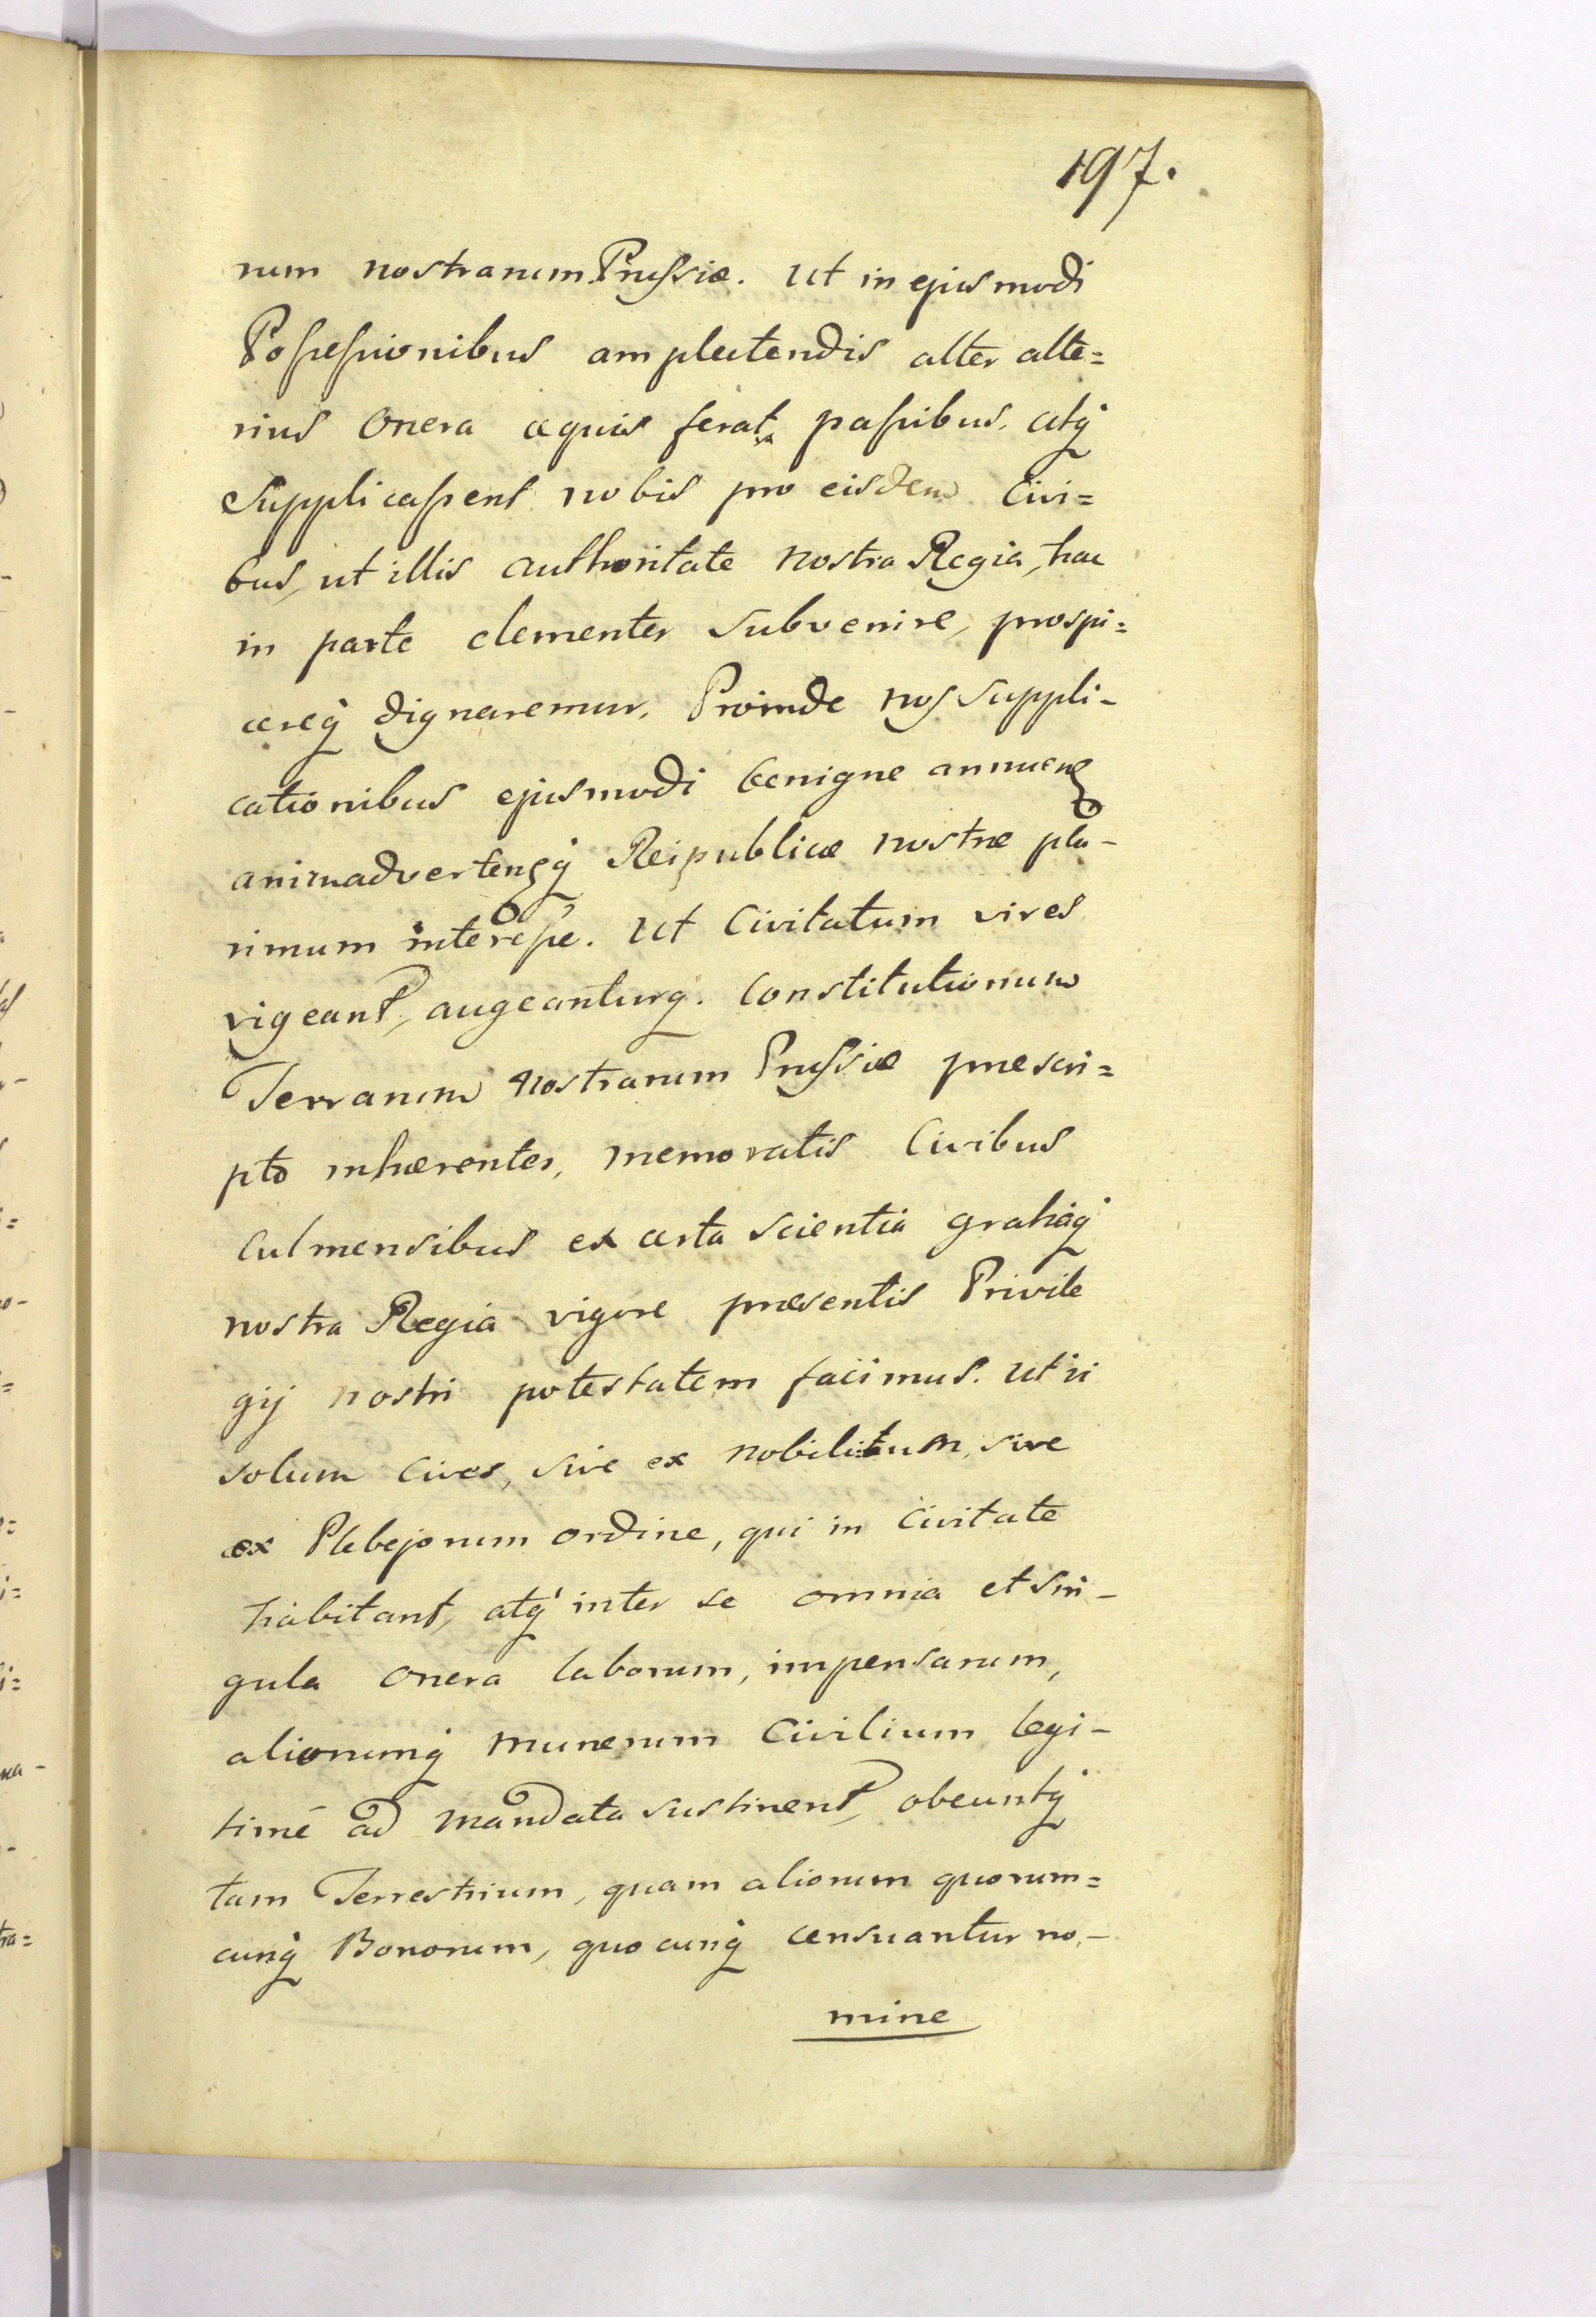 197.
rum nostrarum Prussiæ. Ut in ejusmodi
Possessionibus amplectendis alter alte=
rius Onera æquis ferat passibus. atq́
Supplicassent nobis pro eisdem Civi=
bus, ut illis authoritate nostra Regia, hac
in parte clementer subvenire, prospi=
cereq́ dignaremur. Proinde nos suppli-
cationibus ejusmodi benigne annuen
animadvertensq́ Reipublicæ nostræ plu-
rimum interesse. Ut Civitatum vires
vigeant, augeanturq. Constitutionum
Terrarum Nostrarum Prussiæ præscri=
pto inhærentes, memoratis Civibus
Culmensibus ex certa scientia gratiaq́
nostra Regia vigore præsentis Privile
gij nostri potestatem facimus. Ut ii
solum Cives, sive ex Nobilitum, sive
ex Plebejorum ordine, qui in Civitate
habitant, atq́ inter se omnia et sin-
gula onera laborum, impensarum,
aliorumq́ munerum Civilium legi-
time ad mandata sustinent, obeuntq́
tam Terrestrium, quam aliorum quorum=
cunq́ Bonorum, quocunq́ censeantur no-
mine